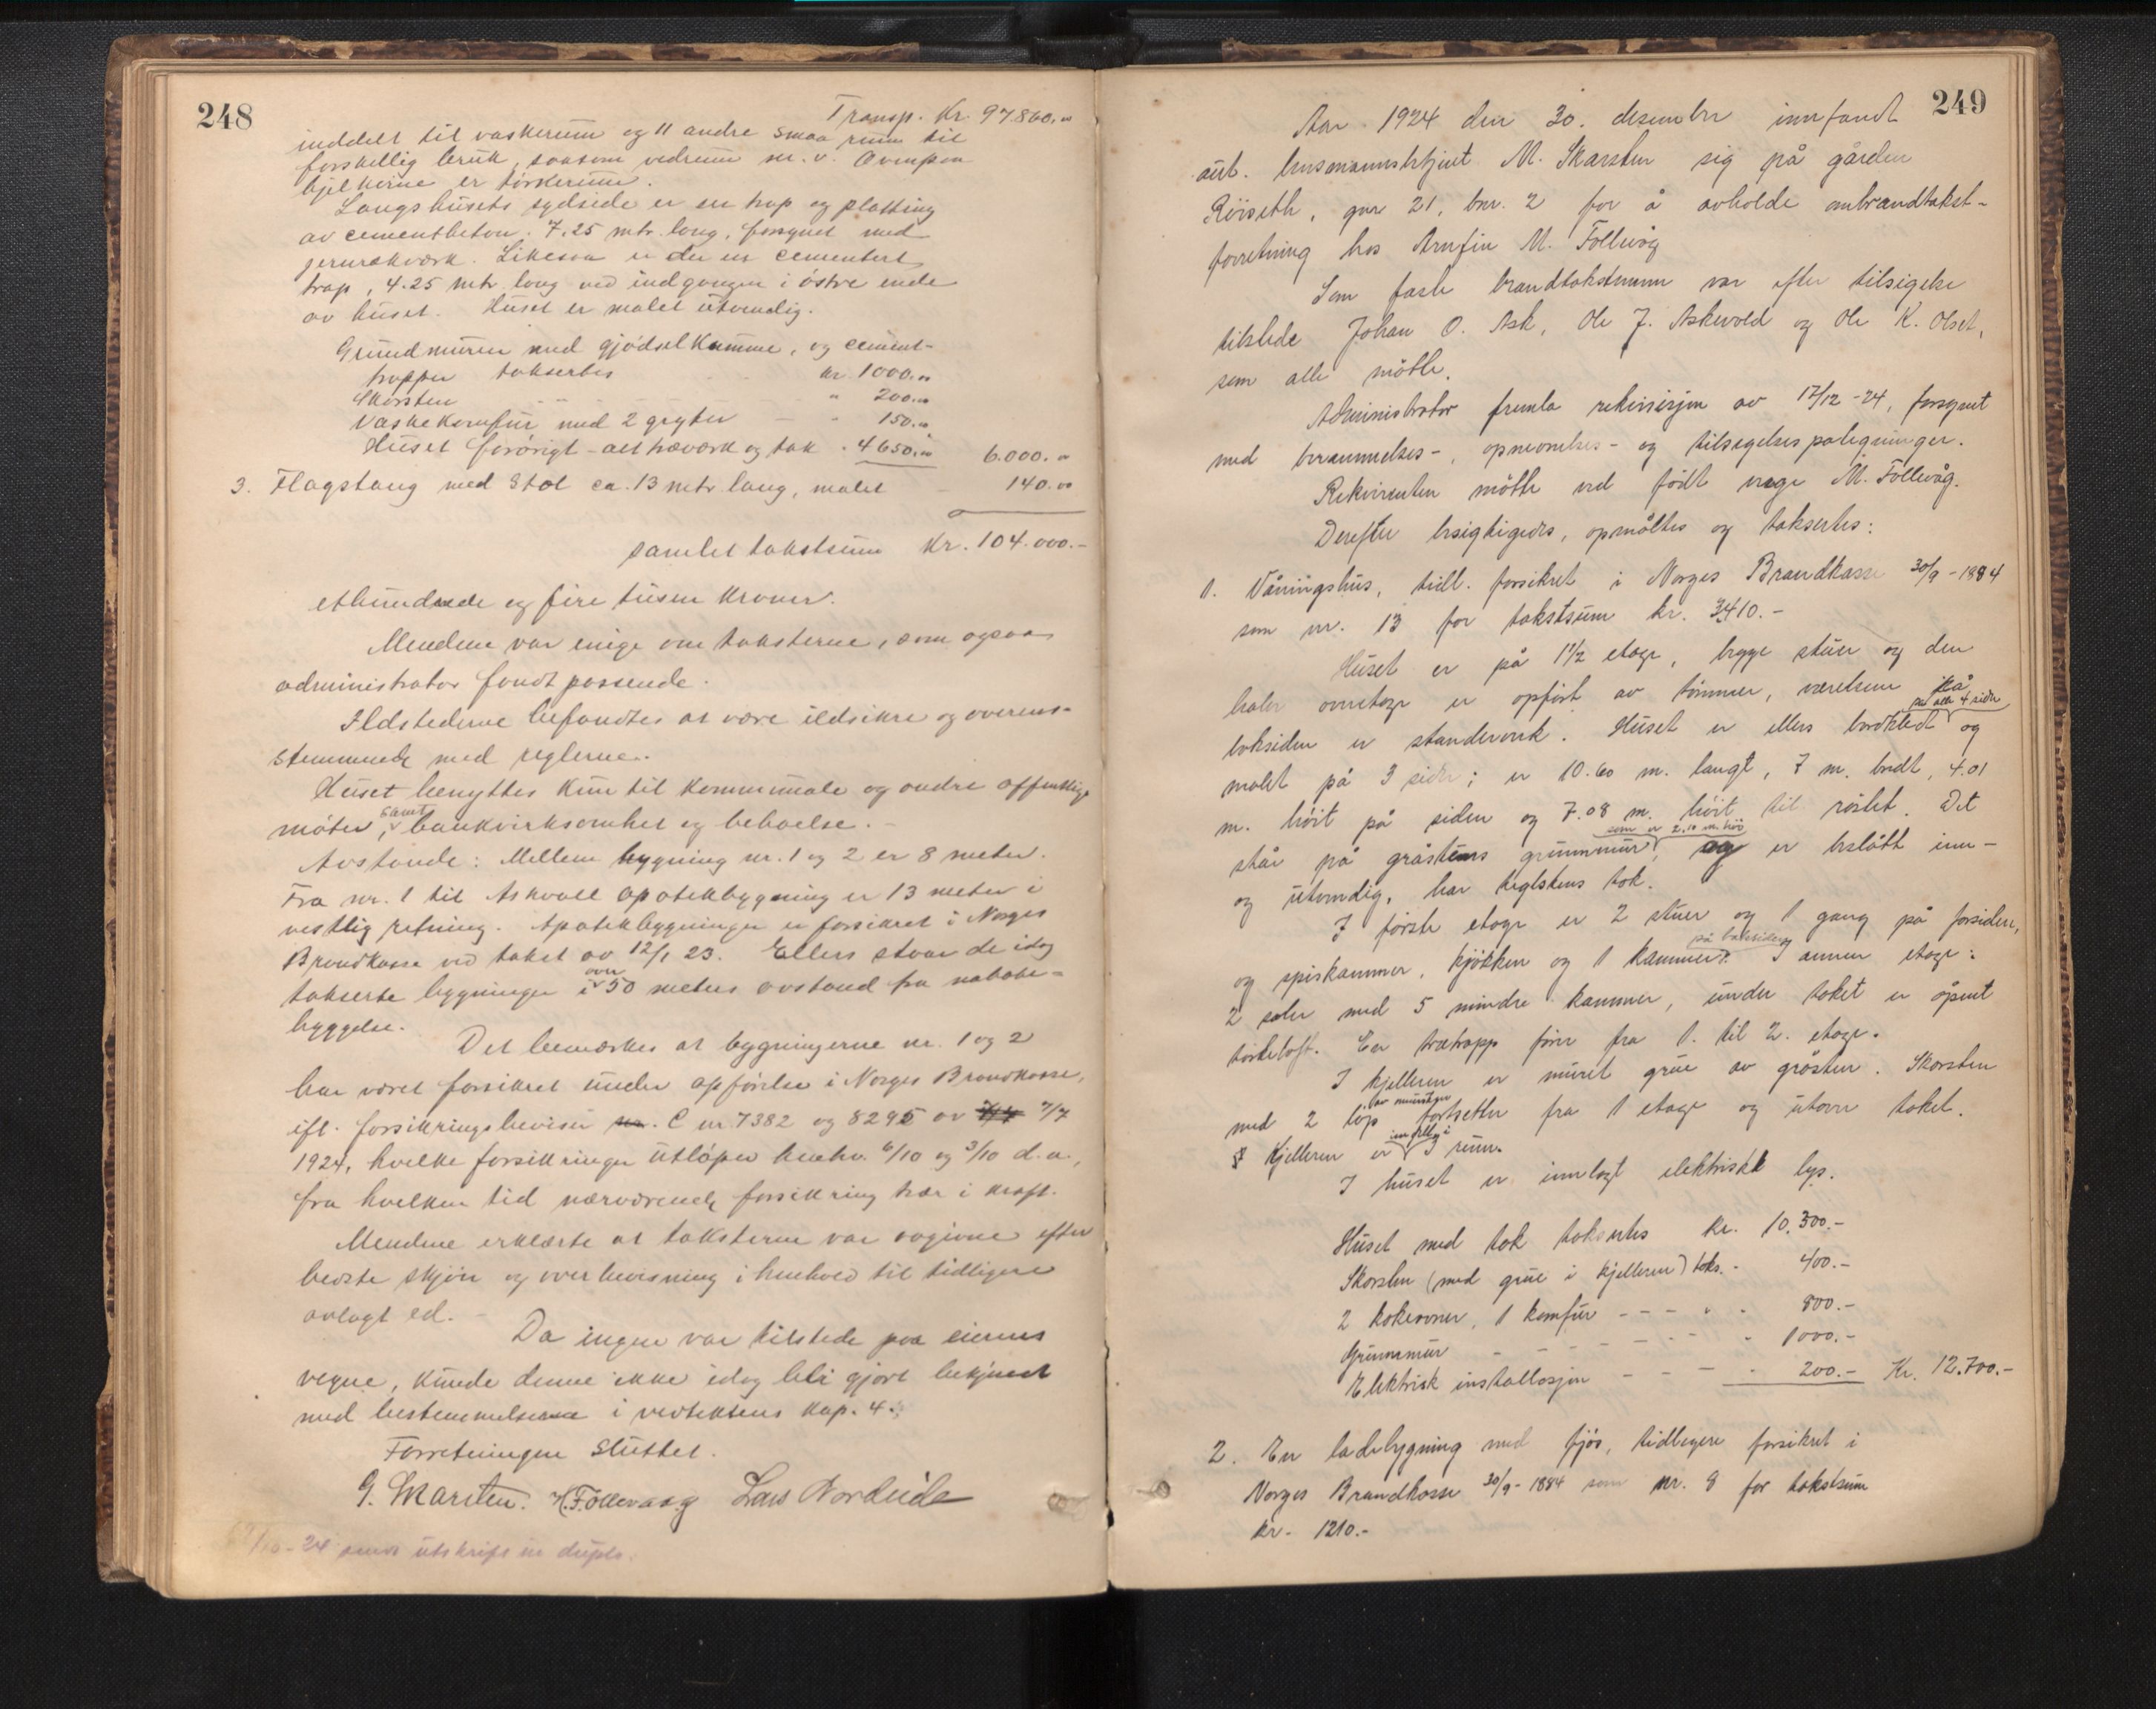 248
Transp. Kr. 97.860.00
inddelt til vaskerum og 11 andre smaa rum til
forskellig bruk, saasom vedrum m. v. Ovenpaa
bjelkerne er tørkerum.
Langs husets sydside er en trap og platting
av cementbeton. 7.25 mtr. lang, forsynet med
jernrækværk. Likesaa er der en cementert
trap, 4.25 mtr. lang ved indgangen i østre ende
av huset. Huset er malet utvendig.
Grundmuren med gjødselkumme, og cement-
trapper takseres kr. 1000.00
Skorsten " 200.00
Vaskekomfur med 2 gryter - " 150.00
Huset forøvrigt - alt træværk og tak . 4650.00 6.000.00
3. Flagstang med Stol ca. 13 mtr. lang, malet - 140.00
samlet takstsum Kr. 104.000.-
ethundrede og fire tusen kroner.
Mændene var enige om taksterne, som ogsaa
administrator fandt passende.
Ildstederne befandtes at være ildsikre og overens-
stemmende med reglerne.
Huset benyttes kun til kommunale og andre offentlige
møter, samt bankvirksomhet og beboelse. -
Avstande: Mellem bygning nr. 1 og 2 er 8 meter.
Fra nr. 1 til Askvoll apotekbygning er 13 meter i
vestlig retning. Apotekbygningen er forsikret i Norges
Brandkasse ved takst av 12/1 23. Ellers staar de idag
takserte bygninger i over 50 meters avstand fra nabobe-
byggelse.
Det bemærkes at bygningerne nr. 1 og 2
har været forsikret under opførelse i Norges Brandkasse,
ifl. forsikringsbeviser C nr. 7382 og 8295 av 7/7
1924, hvilke forsikringer utløper henhv. 6/10 og 3/10 d. a.,
fra hvilken tid nærværende forsikring trær i kraft.
Mændene erklærte at taksterne var avgivne efter
bedste skjøn og overbevisning i henhold til tidligere
avlagt ed. -
Da ingen var tilstede paa eierens
vegne, kunde denne ikke idag bli gjort bekjent
med bestemmelserne i vedtektens kap. 4.
Forretningen sluttet.
G. Skarsten. H. Follevaag Lars Nordeide
/10-24 utskrift in duplo.
249
Aar 1924 den 30. desember innfandt
aut. lensmannsbetjent M. Skarsten sig på gården
Röiseth, gnr 21, bnr. 2 for å avholde ombrandtakst-
forretning hos Arnfin M. Follevåg
Som faste brandtakstmenn var efter tilsigelse
tilstede Johan O. Ask, Ole J. Askevold og Ole K. Olset,
som alle møtte.
Administrator fremla rekvisisjon av 17/12-24, forsynt
med berammelses-, opnevnelses- og tilsigelsespategninger.
Rekvirenten møtte ved født verge M. Follevåg.
Derefter besigtigedes, opmåltes og taksertes:
1. Våningshus, tidl. forsikret i Norges Brandkasse 30/9-1884
som nr. 13 for takstsum kr. 3410.-
Huset er på 1 1/2 etage, begge stuer og den
halve overetage er opført av tømmer, værelsene på
baksiden er standerverk. Huset er ellers bordklædt på alle 4 sider og
malt på 3 sider; er 10.60 m. langt, 7 m. bredt, 4.01
m. høit på siden og 7.08 m. høit til röstet. Det
står på gråstens grunnmur, som er 2.10 m. høi og er beslått inn-
og utvendig, har teglstens tak.
I første etage er 2 stuer og 1 gang på forsiden,
og spiskammer, kjøkken og 1 kammer på baksiden. I annen etage:
2 saler med 5 mindre kammer, under taket er åpent
tørkeloft. En trætrapp fører fra 1. til 2. etage.
I kjelleren er muret grue av gråsten. Skorsten
med 2 löp av mursten fortsetter fra 1 etage og utover taket.
Kjelleren er inndelt i 3 rum.
I huset er innlagt elektriskt lys.
Huset med tak takseres kr. 10.300.-
Skorsten (med grue i kjelleren) taks. - 400.-
2 kokeovner, 1 komfur - - - " - 800.-
Grunnmur - - - - - " 1000.-
Elektrisk installasjon - - - - 200.- Kr. 12.700.-
2. En ladebygning med fjøs, tidligere forsikret i
Norges Brandkasse 30/9-1884 som nr. 8 for takstsum
kr. 1210.-